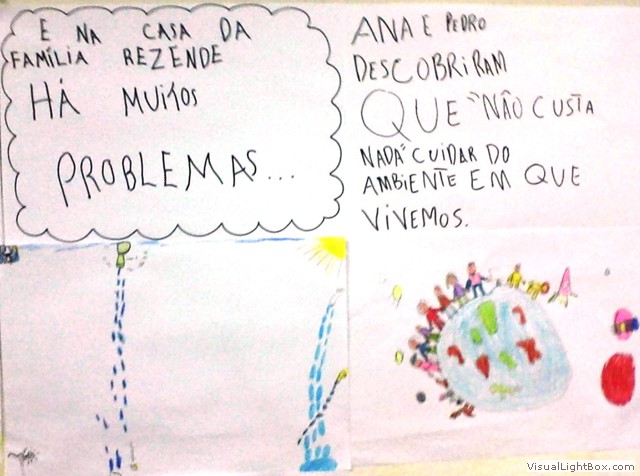 E NA CASA DA
FAMÍLIA REZENDE
HÁ MUITOS
PROBLEMAS...
ANA E PEDRO
DESCOBRIRAM
QUE "NÃO CUSTA
NADA" CUIDAR DO
AMBIENTE EM QUE
VIVEMOS.
VisualLightBox.com